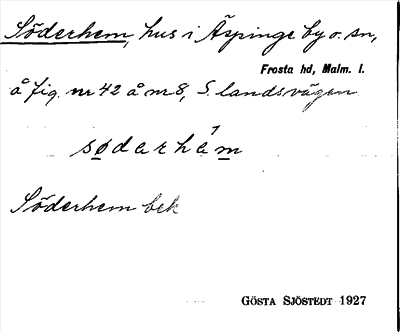 Söderhem, hus i Äspinge by o. sn,
Frosta hd, Malm. l.
å fig. nr 42 å nr 8, S. landsvägen
södarhem
Söderhem bek
GÖSTA SJÖSTEDT 1927